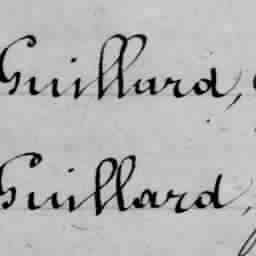 Guillard,
Guillard,